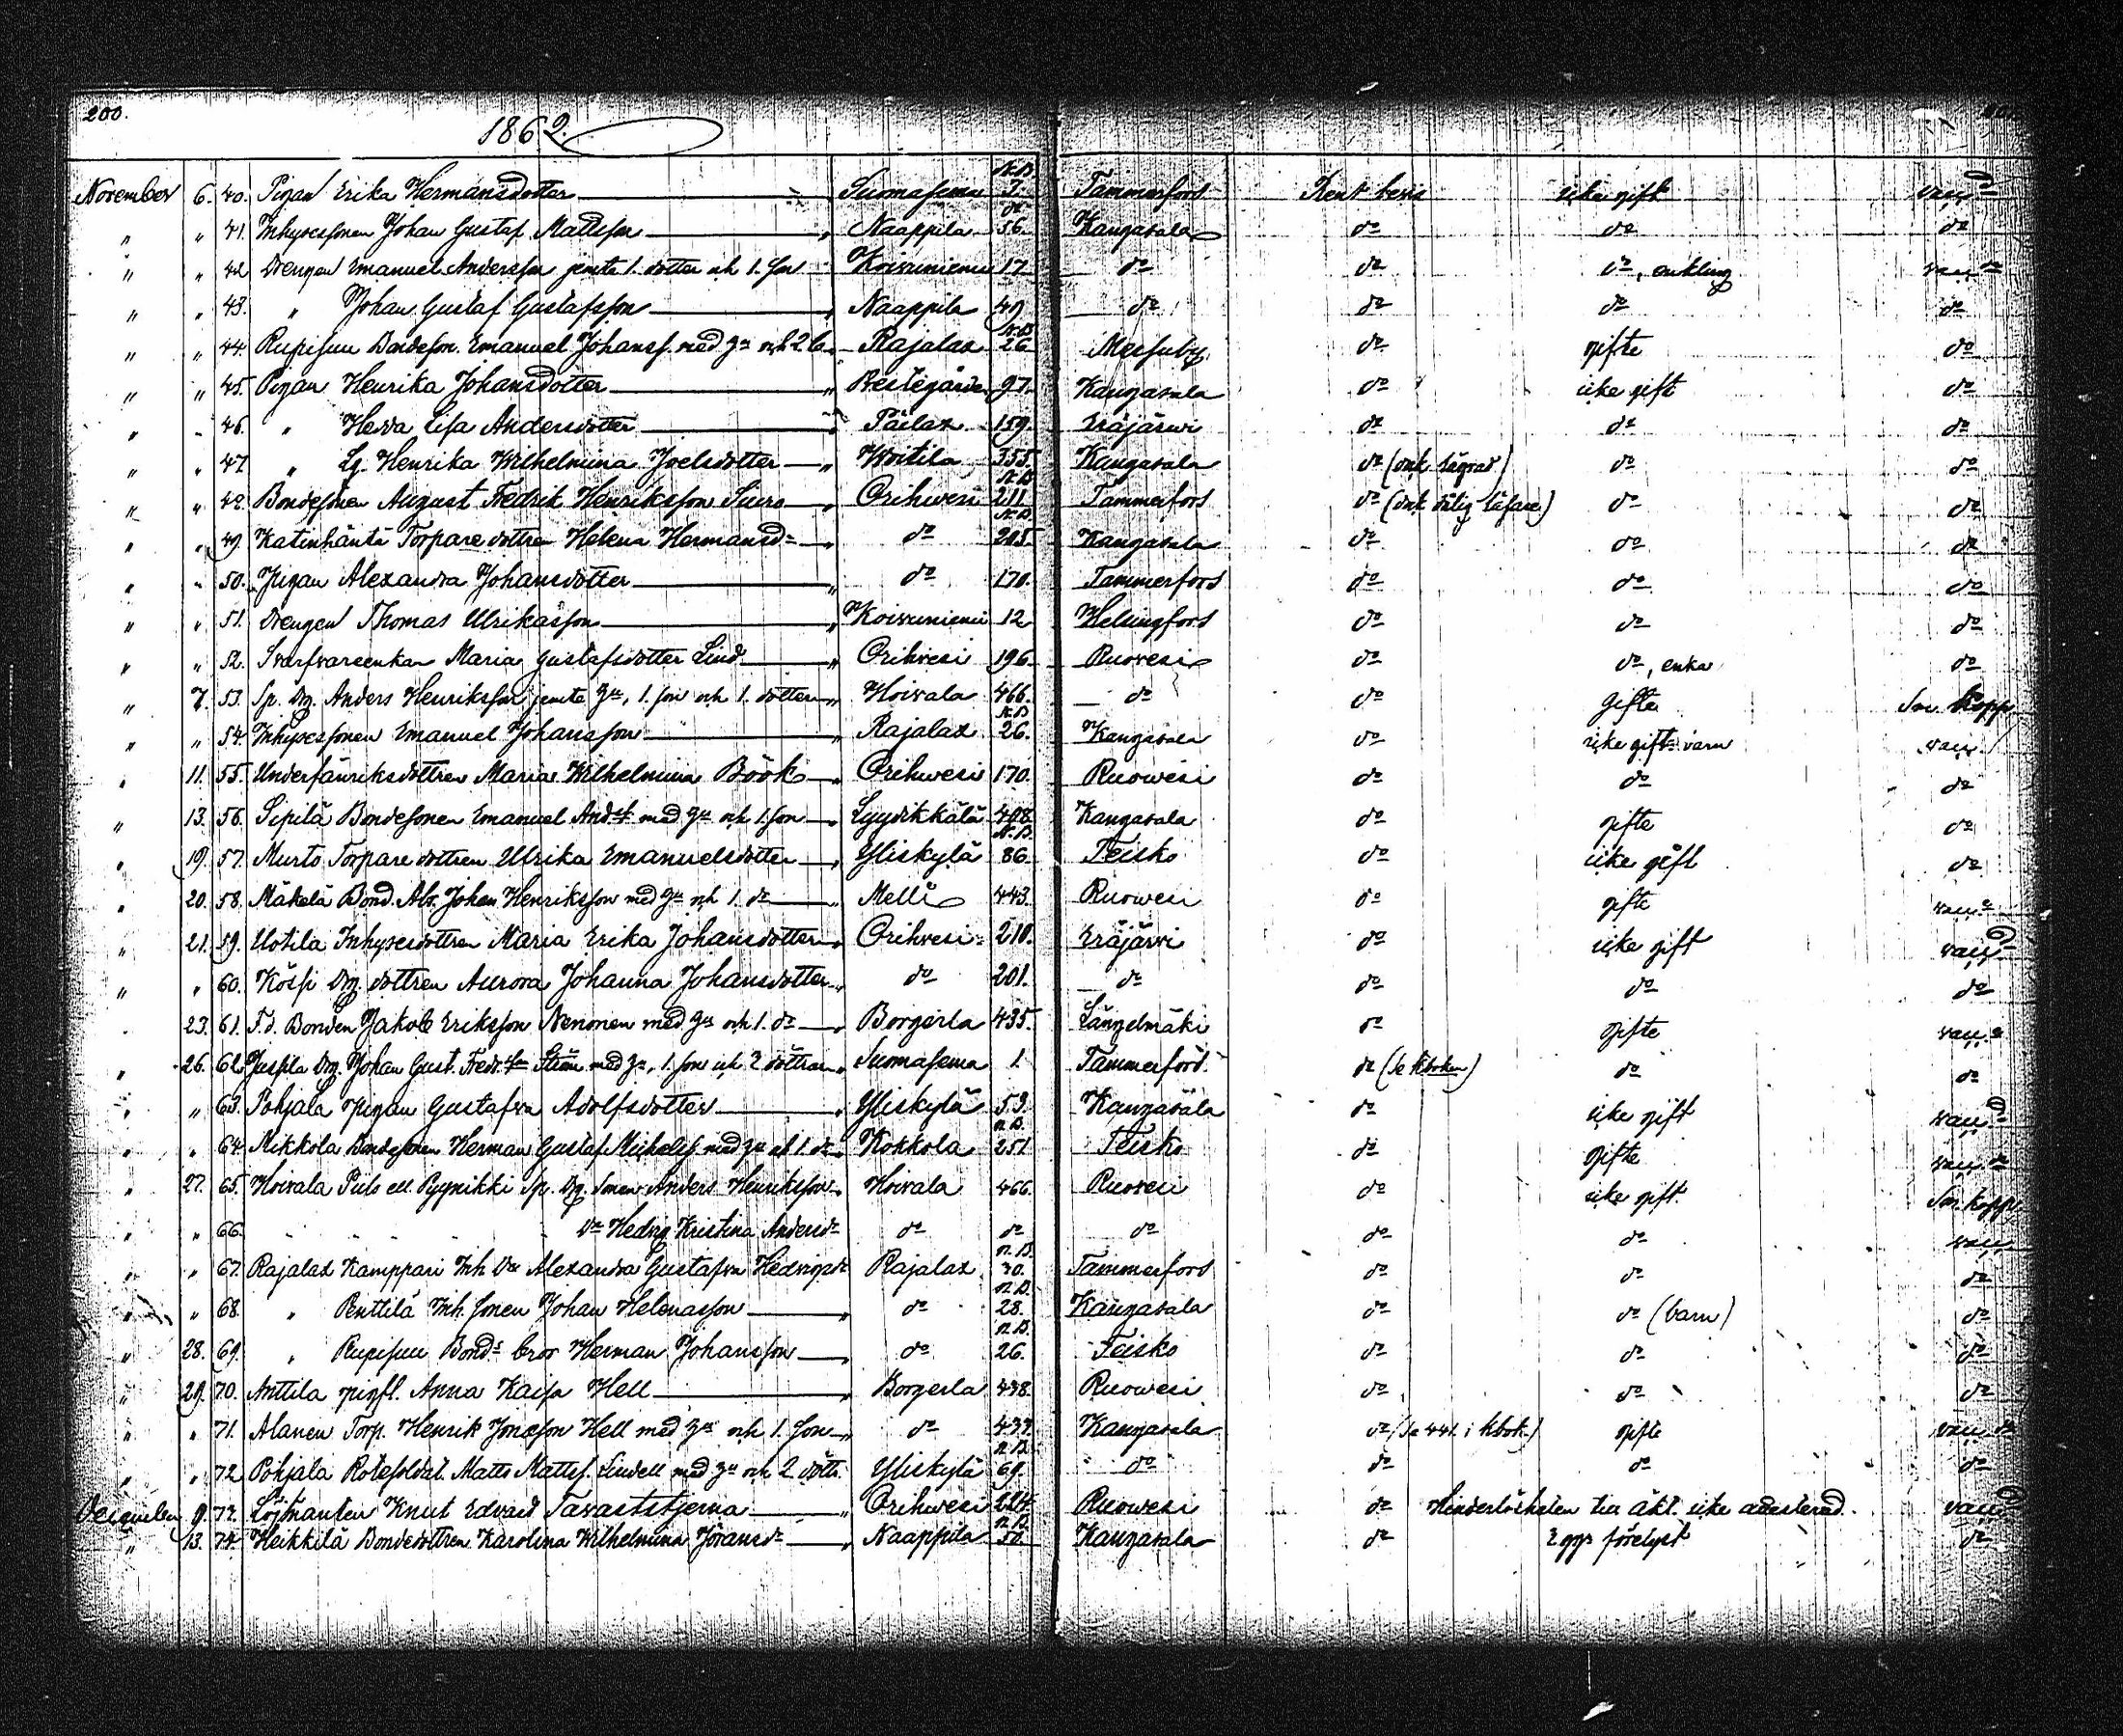 200.
1862.
November 6. 40. Pigan Erika Hermansdotter Suomasema N.B. I. Tammerfors Kent beris icke gift vacc.
" " 41. Inhysessonen Johan Gustaf Mattsson " Naappila 56. Kangasala do do do
" " 42 Drengen Emanuel Andersson jemte 1. dotter och 1. son Koivuniemi 17 do do do, enkling vacc.
" " 43. " Johan Gustaf Gustafsson " Naappila 49 do do do do
" " 44. Rupisuu Bondeson. Emanuel Johanss. med och 2 b. Rajalax N.B. 26 Messuby do gifte do
" " 45. Pigan Henrika Johansdotter " Prestegården 97. Kangasala do icke gift do
" " 46. " Heva Lisa Andersdotter " Päilax 159. Eräjärvi do do do
" " 47 " Lg. Henrika Wilhelmina Joelsdotter " Woitila 355 Kangasala do do do
" " 48. Bondesonen August Fredrik Henriksson Suero " Orihvesi N.B. 211 Tammerfors do do do
" " 49. Katinhäntä Torpare dottren Helena Hermansd " do N.B. 205 Kangasala do do do
" " 50. Pigan Alexandra Johansdotter " do 170. Tammerfors do do do
" " 51. Drengen Thomas Ulrikasson " Koivuniemi 12 Helsingfors do do do
" " 52. Svarfvareenkan Maria Gustafsdotter Lind " Orihvesi 196 Ruovesi do do, enka do
" 7. 53. Sp. Drg. Anders Henriksson jemte , 1. son och 1. dotter " Hoivala 466. do do Gifte kopp
" " 54. Inhysessonen Emanuel Johansson " Rajalax N.B. 26. Kangasala do icke gift barn vacc.
" 11. 55. Underfänriksdottren Maria Wilhelmina Böök " Orihvesi 170. Ruowesi do do do
" 13. 56. Sipilä Bondesonen Emanuel And. med och 1. son " Lyydikkälä 408. Kangasala do gifte do
" 19. 57. Murto Torpare dottren Ulrika Emanuelsdotter " Yliskylä N.B. 86. Teisko do icke gift do
" 20. 58. Mäkelä Bond. Johan Henriksson med och 1. do " Melli 443. Ruowesi do gifte vacc.
" 21. 59. Uotila Inhysesdottren Maria Erika Johansdotter " Orihvesi 210. Eräjärvi do icke gift vacc.
" " 60. Kössi Drg. dottren Aurora Johanna Johansdotter " do 201. do do do do
" 23. 61. F.d. Bonden Jakob Eriksson Nenonen med och 1. do " Borgerla 435. Längelmäki do gifte vacc.
" 26. 62. Jussila Drg. Johan Gust. Fredr. Ström med , 1. son och 2 döttrar " Suomasema 1 Tammerfors. do (Se kboken) do do
" " 63. Pohjala pigan Gustafva Adolfsdotter " Yliskylä 53. Kangasala do icke gift vacc.
" " 64. Mikkola Bondesonen Herman Gustaf Michelss. med och 1. do " Kokkola n.B. 251 Teisko do gifte vacc.
" 27. 65. Hoivala Piilo ell Pyynikki Sp. Drg. Sonen Anders Henriksson " Hoivala 466. Ruovesi do icke gift. kopp.
" " 66. Hedvig Kristina Andersd do do do do do vacc.
" " 67. Rajalax Kamppari Inh. Alexandra Gustafva Hedvigsd Rajalax n.B. 30. Tammerfors do do do
" " 68. " Penttilä Inh. sonen Johan Helenasson " do n.B. 28. Kangasala do do (barn) do
" 28. 69. " Rupisuu Bonds bror Herman Johansson " do n.B. 26. Teisko do do do
" 29. 70. Anttila Anna Kaisa Hell " Borgerla 438. Ruowesi do do do
" " 71. Alanen Torp. Henrik Jonasson Hell med och 1. son " do 433. Kangasala do (Se 441 i kbok.) gifte vacc.
" " 72 Pohjala Rotesoldat. Matts Mattss. Lindell med och 2 döttr. Yliskylä n.B. 69. do do do do
December 9. 73. Löjtnanten Knut Edvard Tavaststjerna " Orihvesi 224. Ruovesi do Hinderlösheten till äkt. icke attesterad. vacc.
" 13. 74. Heikkilä Bondedottren Karolina Wilhelmina Göransd " Naappila n.B. 50. Kangasala do förelyst do